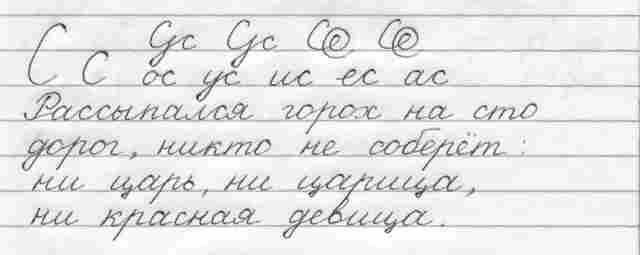 С с Ус Ус Се Се
ос ус ис ес ас
Рассыпался горох на сто
дорог, никто не соберёт:
ни царь, ни царица,
ни красная девица.